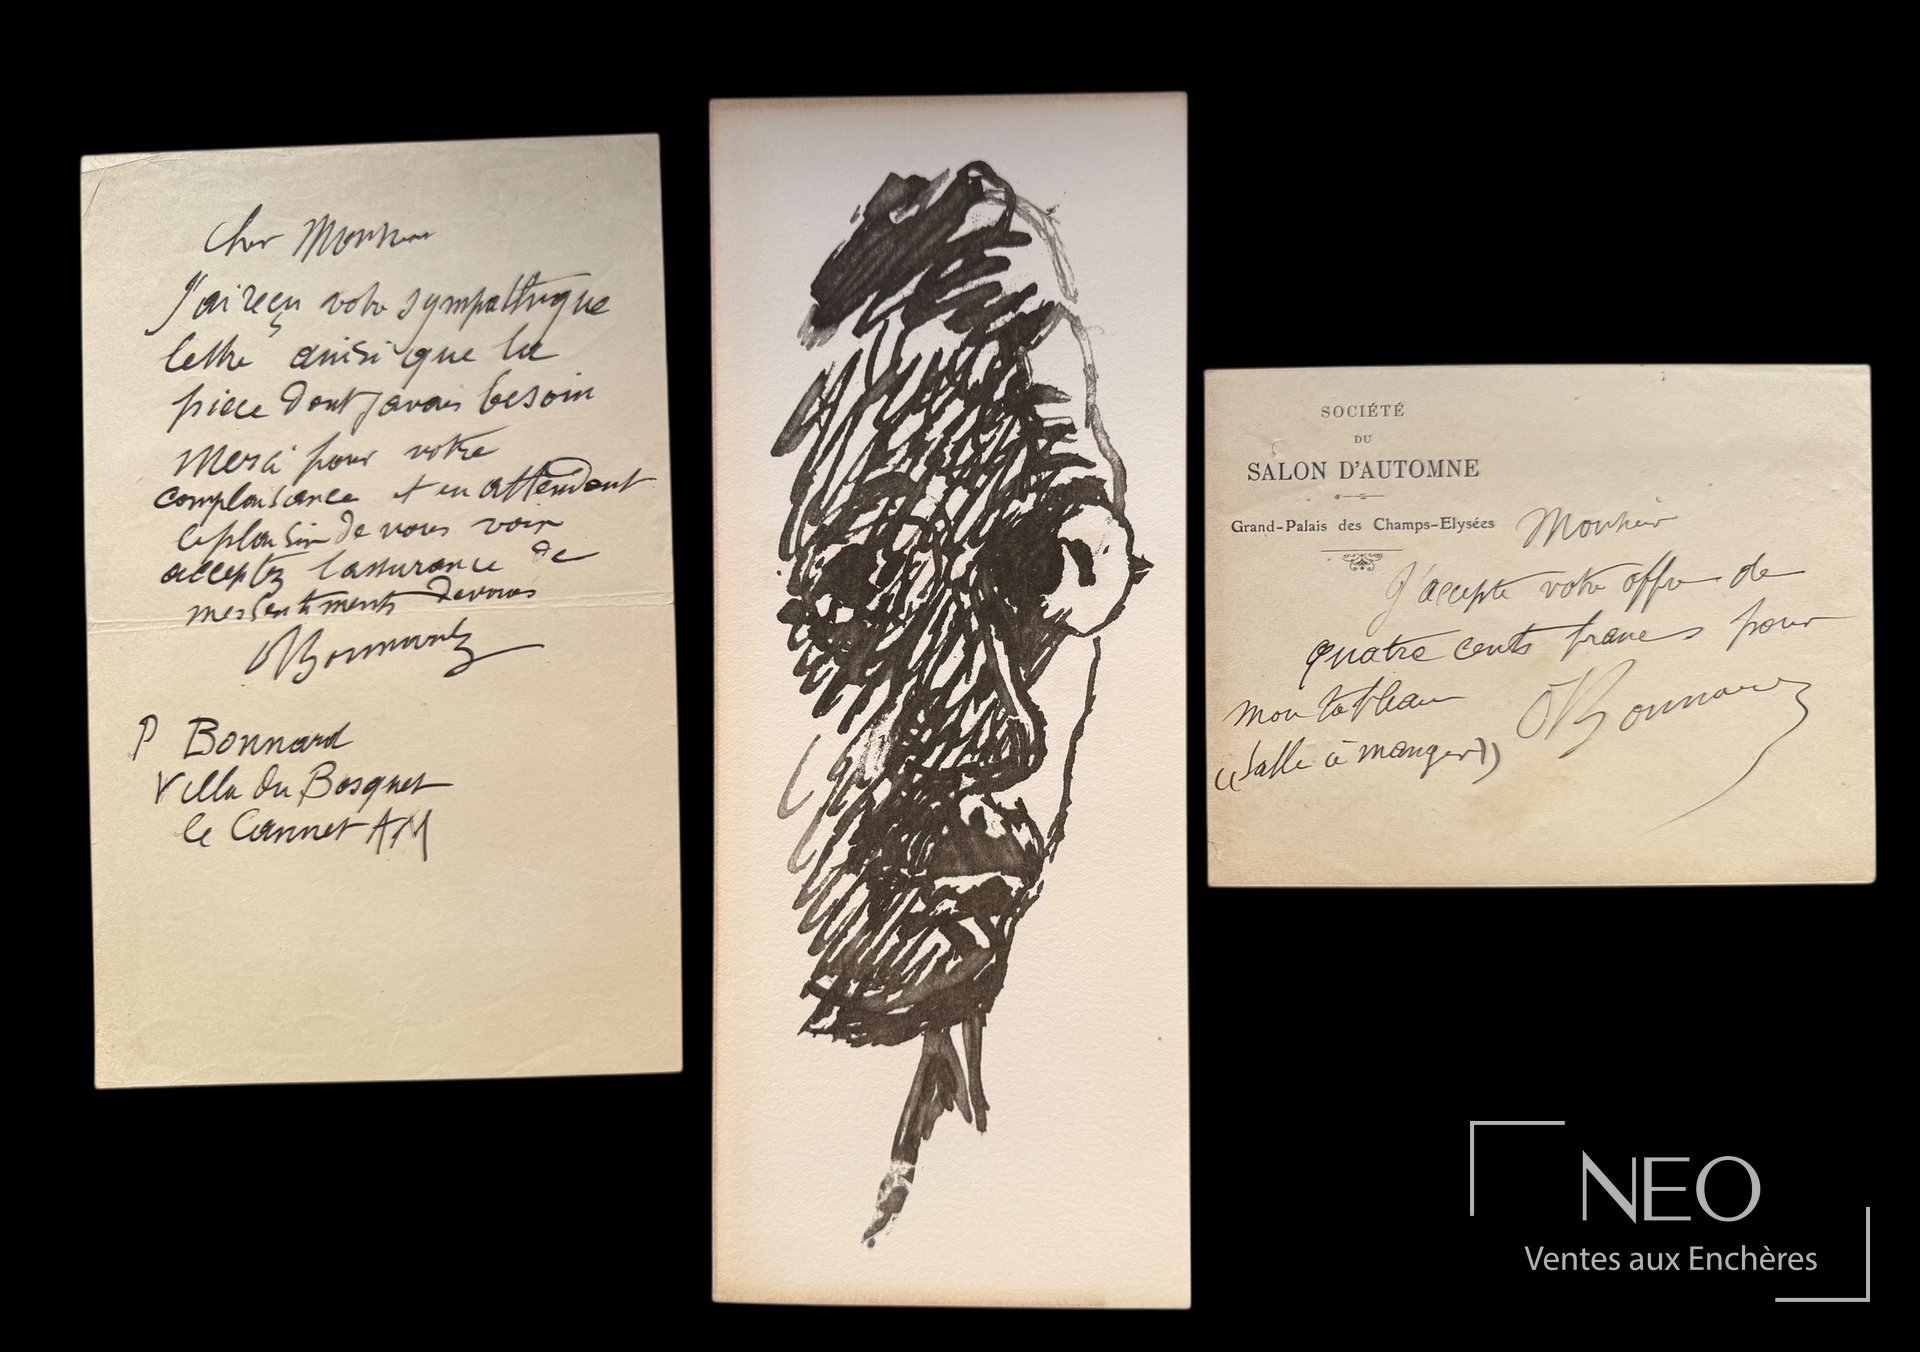 Cher Monsieur
J'ai reçu votre sympathique
lettre ainsi que la
piece dont j'avais besoin
Merci pour votre
complaisance et en attendant
le plaisir de vous voir
acceptez l'assurance de
mes sentiments dévoués
PBonnard
P Bonnard
Villa du Bosquet
le Cannet AM
SOCIÉTÉ
DU
SALON D'AUTOMNE
Grand-Palais des Champs-Elysées
Monsieur
J'accepte votre offre de
quatre cents francs pour
mon tableau
((Salle à manger))
PBonnard
NEO
Ventes aux Enchères